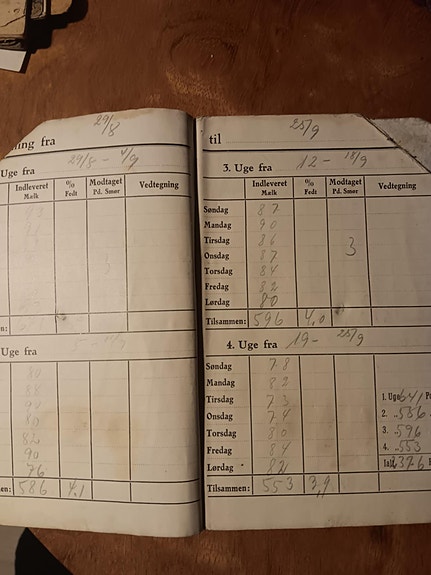 29/8
ning fra
Uge fra 29/8 - 4/9
Indleveret Mælk % Fedt Modtaget Pd. Smør Vedtegning
en:
Uge fra
80
82
90
76
en: 586 4,1
til 25/9
3. Uge fra 12 - 18/9
Indleveret Mælk % Fedt Modtaget Pd. Smør Vedtegning
Søndag 87
Mandag 90
Tirsdag 86 3
Onsdag 87
Torsdag 84
Fredag 82
Lørdag 80
Tilsammen: 596 4,0
4. Uge fra 19 - 25/9
Søndag 78
Mandag 82
Tirsdag 73 1. Uge 641 P
Onsdag 74 2. „ 586
Torsdag 80 3. „ 596
Fredag 84 4. „ 553
Lørdag 82 Ialt 2376
Tilsammen: 553 3,9